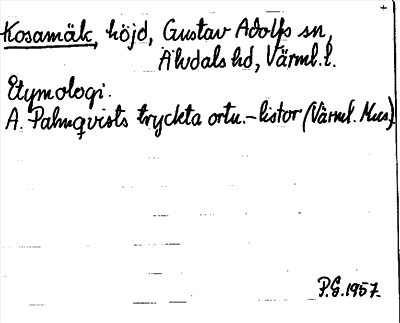 Kosamäk, höjd, Gustav Adolfs sn,
Älvdals hd, Värml. l.
Etymologi.
A. Palmqvists tryckta ortn.-listor (Värml. Mus.)
P.G. 1957.